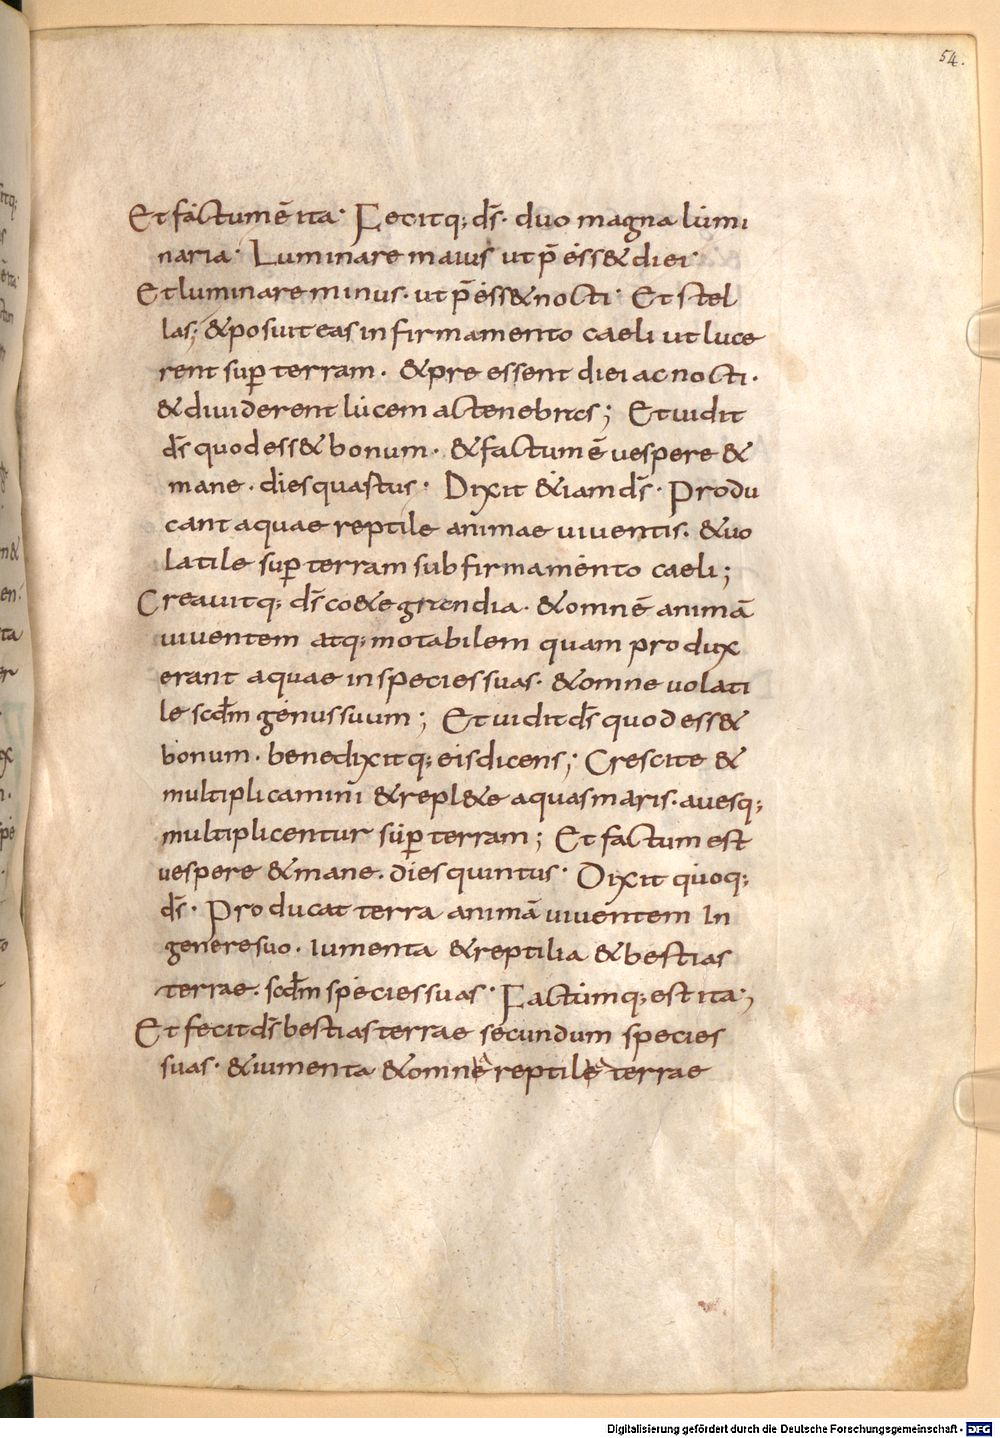 54.
Et factum ē ita· Fecitq; ds̄· duo magna lumi
naria· Luminare maius ut p̄ ess& diei·
Et luminare minus· ut p̄ ess& nocti· Et stel
las; & posuit eas in firmamento caeli ut luce
rent sup̱ terram· & pre essent diei ac nocti·
& diuiderent lucem ac tenebras; Et uidit
ds̄ quod ess& bonum· & factum ē uespere &
mane· dies quartus· Dixit &iam ds̄· Produ
cant aquae reptile animae uiuentis· & uo
latile sup̱ terram sub firmamento caeli;
Creauitq; ds̄ co&e grandia· & omnē animā
uiuentem atq; motabilem quam produx
erant aquae in species suas· & omne uolati
le scd̄m genus suum; Et uidit ds̄ quod ess&
bonum· benedixitq; eis dicens; Crescite &
multiplicamini & repl&e aquas maris· auesq;
multiplicentur sup̱ terram; Et factum est
uespere & mane· dies quintus· Dixit quoq;
ds̄· Producat terra animā uiuentem in
genere suo· iumenta & reptilia & bestias
terrae· scd̄m species suas· Factumq; est ita;
Et fecit ds̄ bestias terrae secundum species
suas· & iumenta & omne reptile terrae
Digitalisierung gefördert durch die Deutsche Forschungsgemeinschaft - DFG